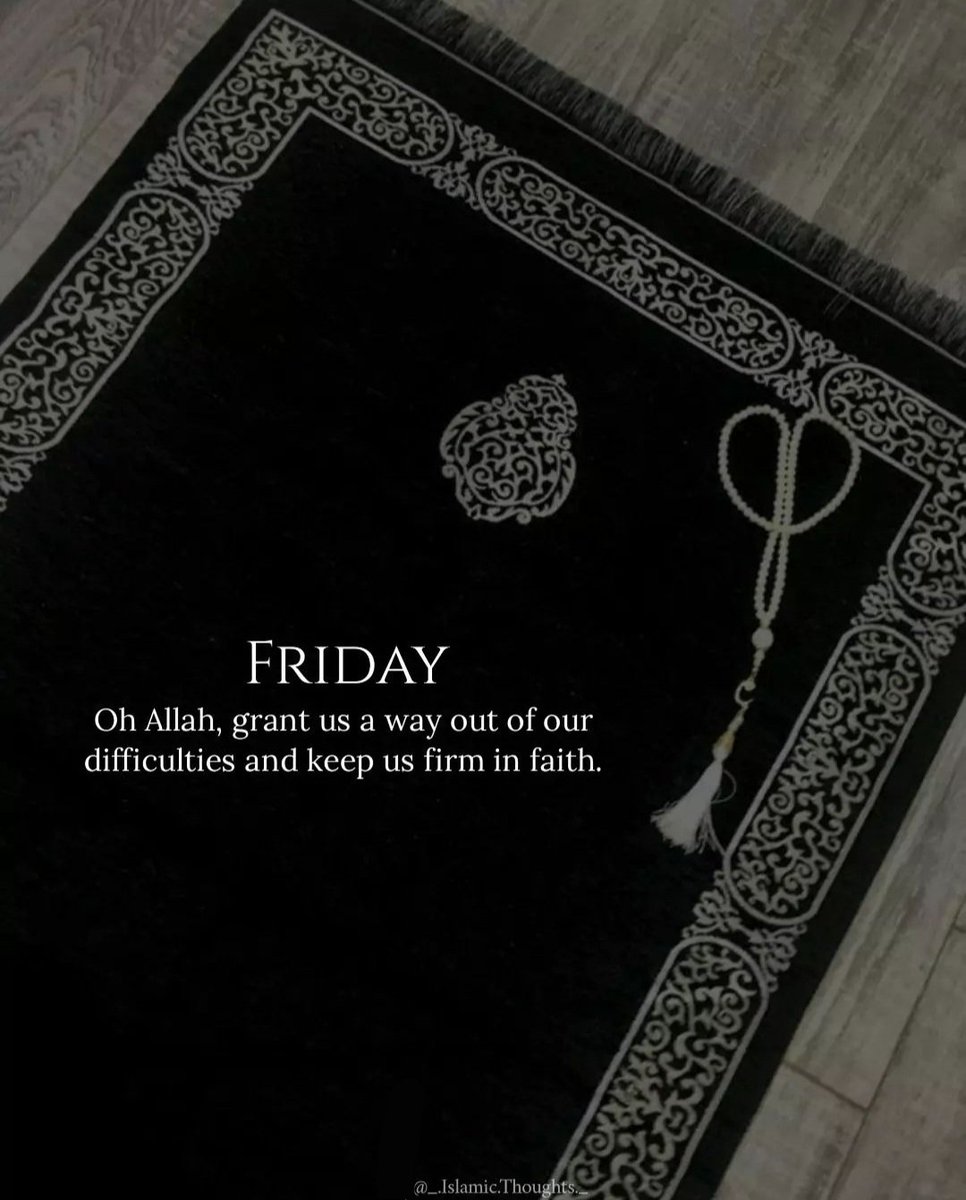 Friday
Oh Allah, grant us a way out of our
difficulties and keep us firm in faith.
@_.Islamic.Thoughts._